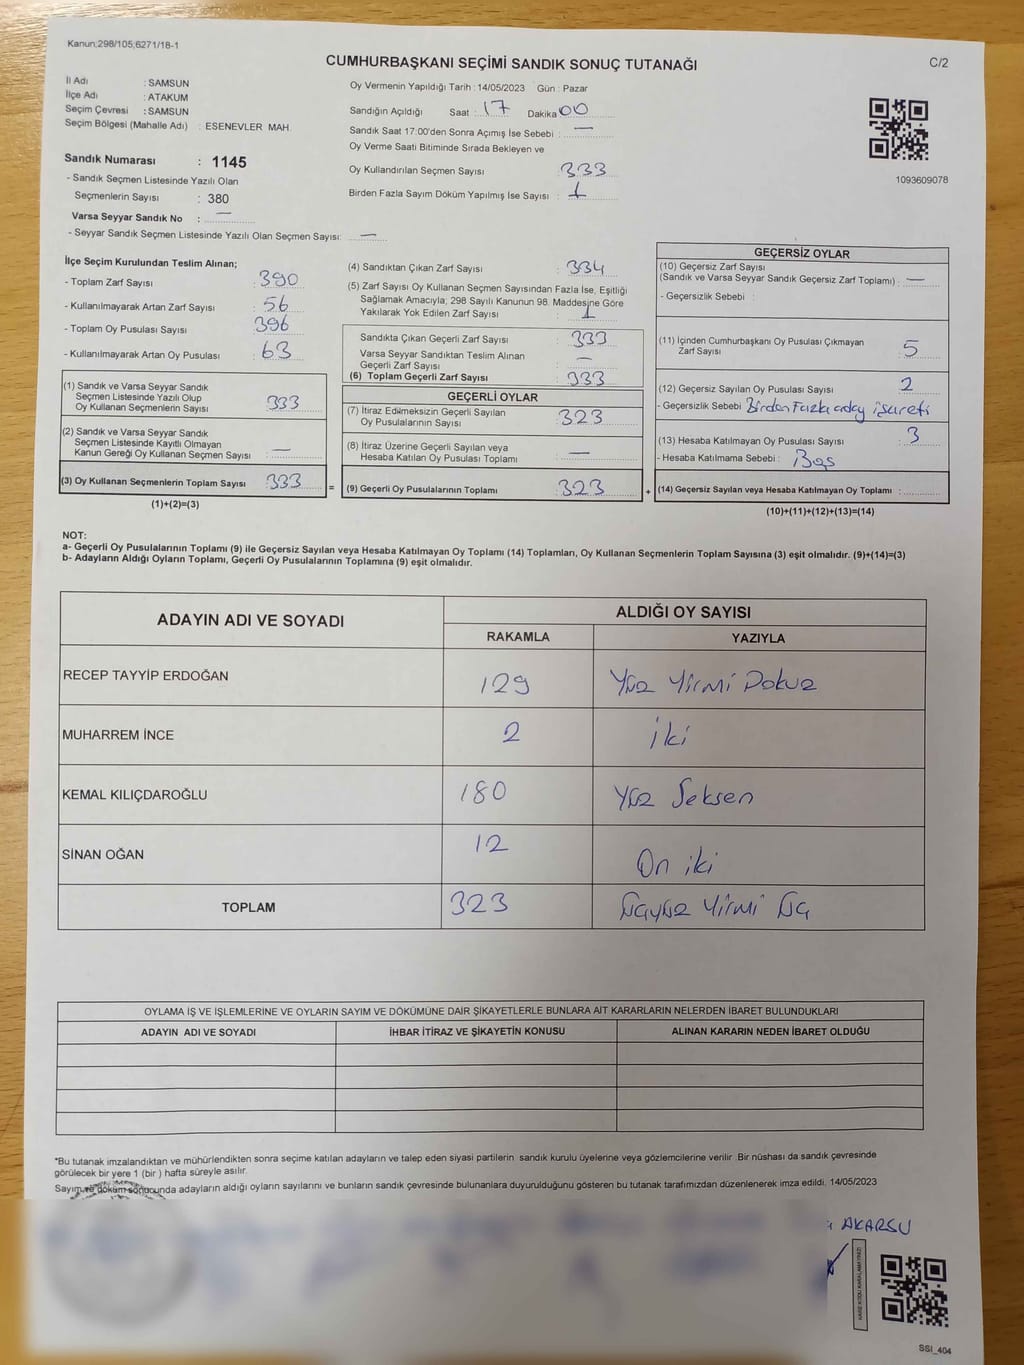 Kanun;298/105;6271/18-1
CUMHURBAŞKANI SEÇİMİ SANDIK SONUÇ TUTANAĞI
C/2
İl Adı : SAMSUN
İlçe Adı : ATAKUM
Seçim Çevresi : SAMSUN
Seçim Bölgesi (Mahalle Adı) : ESENEVLER MAH.
Sandık Numarası : 1145
- Sandık Seçmen Listesinde Yazılı Olan
Seçmenlerin Sayısı : 380
Varsa Seyyar Sandık No : —
- Seyyar Sandık Seçmen Listesinde Yazılı Olan Seçmen Sayısı: —
Oy Vermenin Yapıldığı Tarih : 14/05/2023 Gün : Pazar
Sandığın Açıldığı Saat : 17 Dakika 00
Sandık Saat 17:00'den Sonra Açımış İse Sebebi : —
Oy Verme Saati Bitiminde Sırada Bekleyen ve
Oy Kullandırılan Seçmen Sayısı : 333
Birden Fazla Sayım Döküm Yapılmış İse Sayısı : 1
1093609078
İlçe Seçim Kurulundan Teslim Alınan;
- Toplam Zarf Sayısı : 390
- Kullanılmayarak Artan Zarf Sayısı : 56
- Toplam Oy Pusulası Sayısı : 396
- Kullanılmayarak Artan Oy Pusulası : 63
(1) Sandık ve Varsa Seyyar Sandık
Seçmen Listesinde Yazılı Olup
Oy Kullanan Seçmenlerin Sayısı : 333
(2) Sandık ve Varsa Seyyar Sandık
Seçmen Listesinde Kayıtlı Olmayan
Kanun Gereği Oy Kullanan Seçmen Sayısı : —
(3) Oy Kullanan Seçmenlerin Toplam Sayısı : 333
(1)+(2)=(3)
=
(4) Sandıktan Çıkan Zarf Sayısı : 334
(5) Zarf Sayısı Oy Kullanan Seçmen Sayısından Fazla İse, Eşitliği
Sağlamak Amacıyla, 298 Sayılı Kanunun 98. Maddesine Göre
Yakılarak Yok Edilen Zarf Sayısı : 1
Sandıkta Çıkan Geçerli Zarf Sayısı : 333
Varsa Seyyar Sandıktan Teslim Alınan
Geçerli Zarf Sayısı : —
(6) Toplam Geçerli Zarf Sayısı : 333
GEÇERLİ OYLAR
(7) İtiraz Edilmeksizin Geçerli Sayılan
Oy Pusulalarının Sayısı : 323
(8) İtiraz Üzerine Geçerli Sayılan veya
Hesaba Katılan Oy Pusulası Toplamı : —
(9) Geçerli Oy Pusulalarının Toplamı : 323
+
GEÇERSİZ OYLAR
(10) Geçersiz Zarf Sayısı
(Sandık ve Varsa Seyyar Sandık Geçersiz Zarf Toplamı) : —
- Geçersizlik Sebebi :
(11) İçinden Cumhurbaşkanı Oy Pusulası Çıkmayan
Zarf Sayısı : 5
(12) Geçersiz Sayılan Oy Pusulası Sayısı : 2
- Geçersizlik Sebebi : Birden Fazla aday işareti
(13) Hesaba Katılmayan Oy Pusulası Sayısı : 3
- Hesaba Katılmama Sebebi : Boş
(14) Geçersiz Sayılan veya Hesaba Katılmayan Oy Toplamı :
(10)+(11)+(12)+(13)=(14)
NOT:
a- Geçerli Oy Pusulalarının Toplamı (9) ile Geçersiz Sayılan veya Hesaba Katılmayan Oy Toplamı (14) Toplamları, Oy Kullanan Seçmenlerin Toplam Sayısına (3) eşit olmalıdır. (9)+(14)=(3)
b- Adayların Aldığı Oyların Toplamı, Geçerli Oy Pusulalarının Toplamına (9) eşit olmalıdır.
ADAYIN ADI VE SOYADI
ALDIĞI OY SAYISI
RAKAMLA YAZIYLA
RECEP TAYYİP ERDOĞAN 129 Yüz Yirmi Dokuz
MUHARREM İNCE 2 İki
KEMAL KILIÇDAROĞLU 180 Yüz Seksen
SİNAN OĞAN 12 On iki
TOPLAM 323 Üçyüz Yirmi Üç
OYLAMA İŞ VE İŞLEMLERİNE VE OYLARIN SAYIM VE DÖKÜMÜNE DAİR ŞİKAYETLERLE BUNLARA AİT KARARLARIN NELERDEN İBARET BULUNDUKLARI
ADAYIN ADI VE SOYADI İHBAR İTİRAZ VE ŞİKAYETİN KONUSU ALINAN KARARIN NEDEN İBARET OLDUĞU
*Bu tutanak imzalandıktan ve mühürlendikten sonra seçime katılan adayların ve talep eden siyasi partilerin sandık kurulu üyelerine veya gözlemcilerine verilir. Bir nüshası da sandık çevresinde
görülecek bir yere 1 (bir ) hafta süreyle asılır.
Sayım ve döküm sonucunda adayların aldığı oyların sayılarını ve bunların sandık çevresinde bulunanlara duyurulduğunu gösteren bu tutanak tarafımızdan düzenlenerek imza edildi. 14/05/2023
AKARSU
KARE KODU KARALAMAYINIZ!
SSI_404